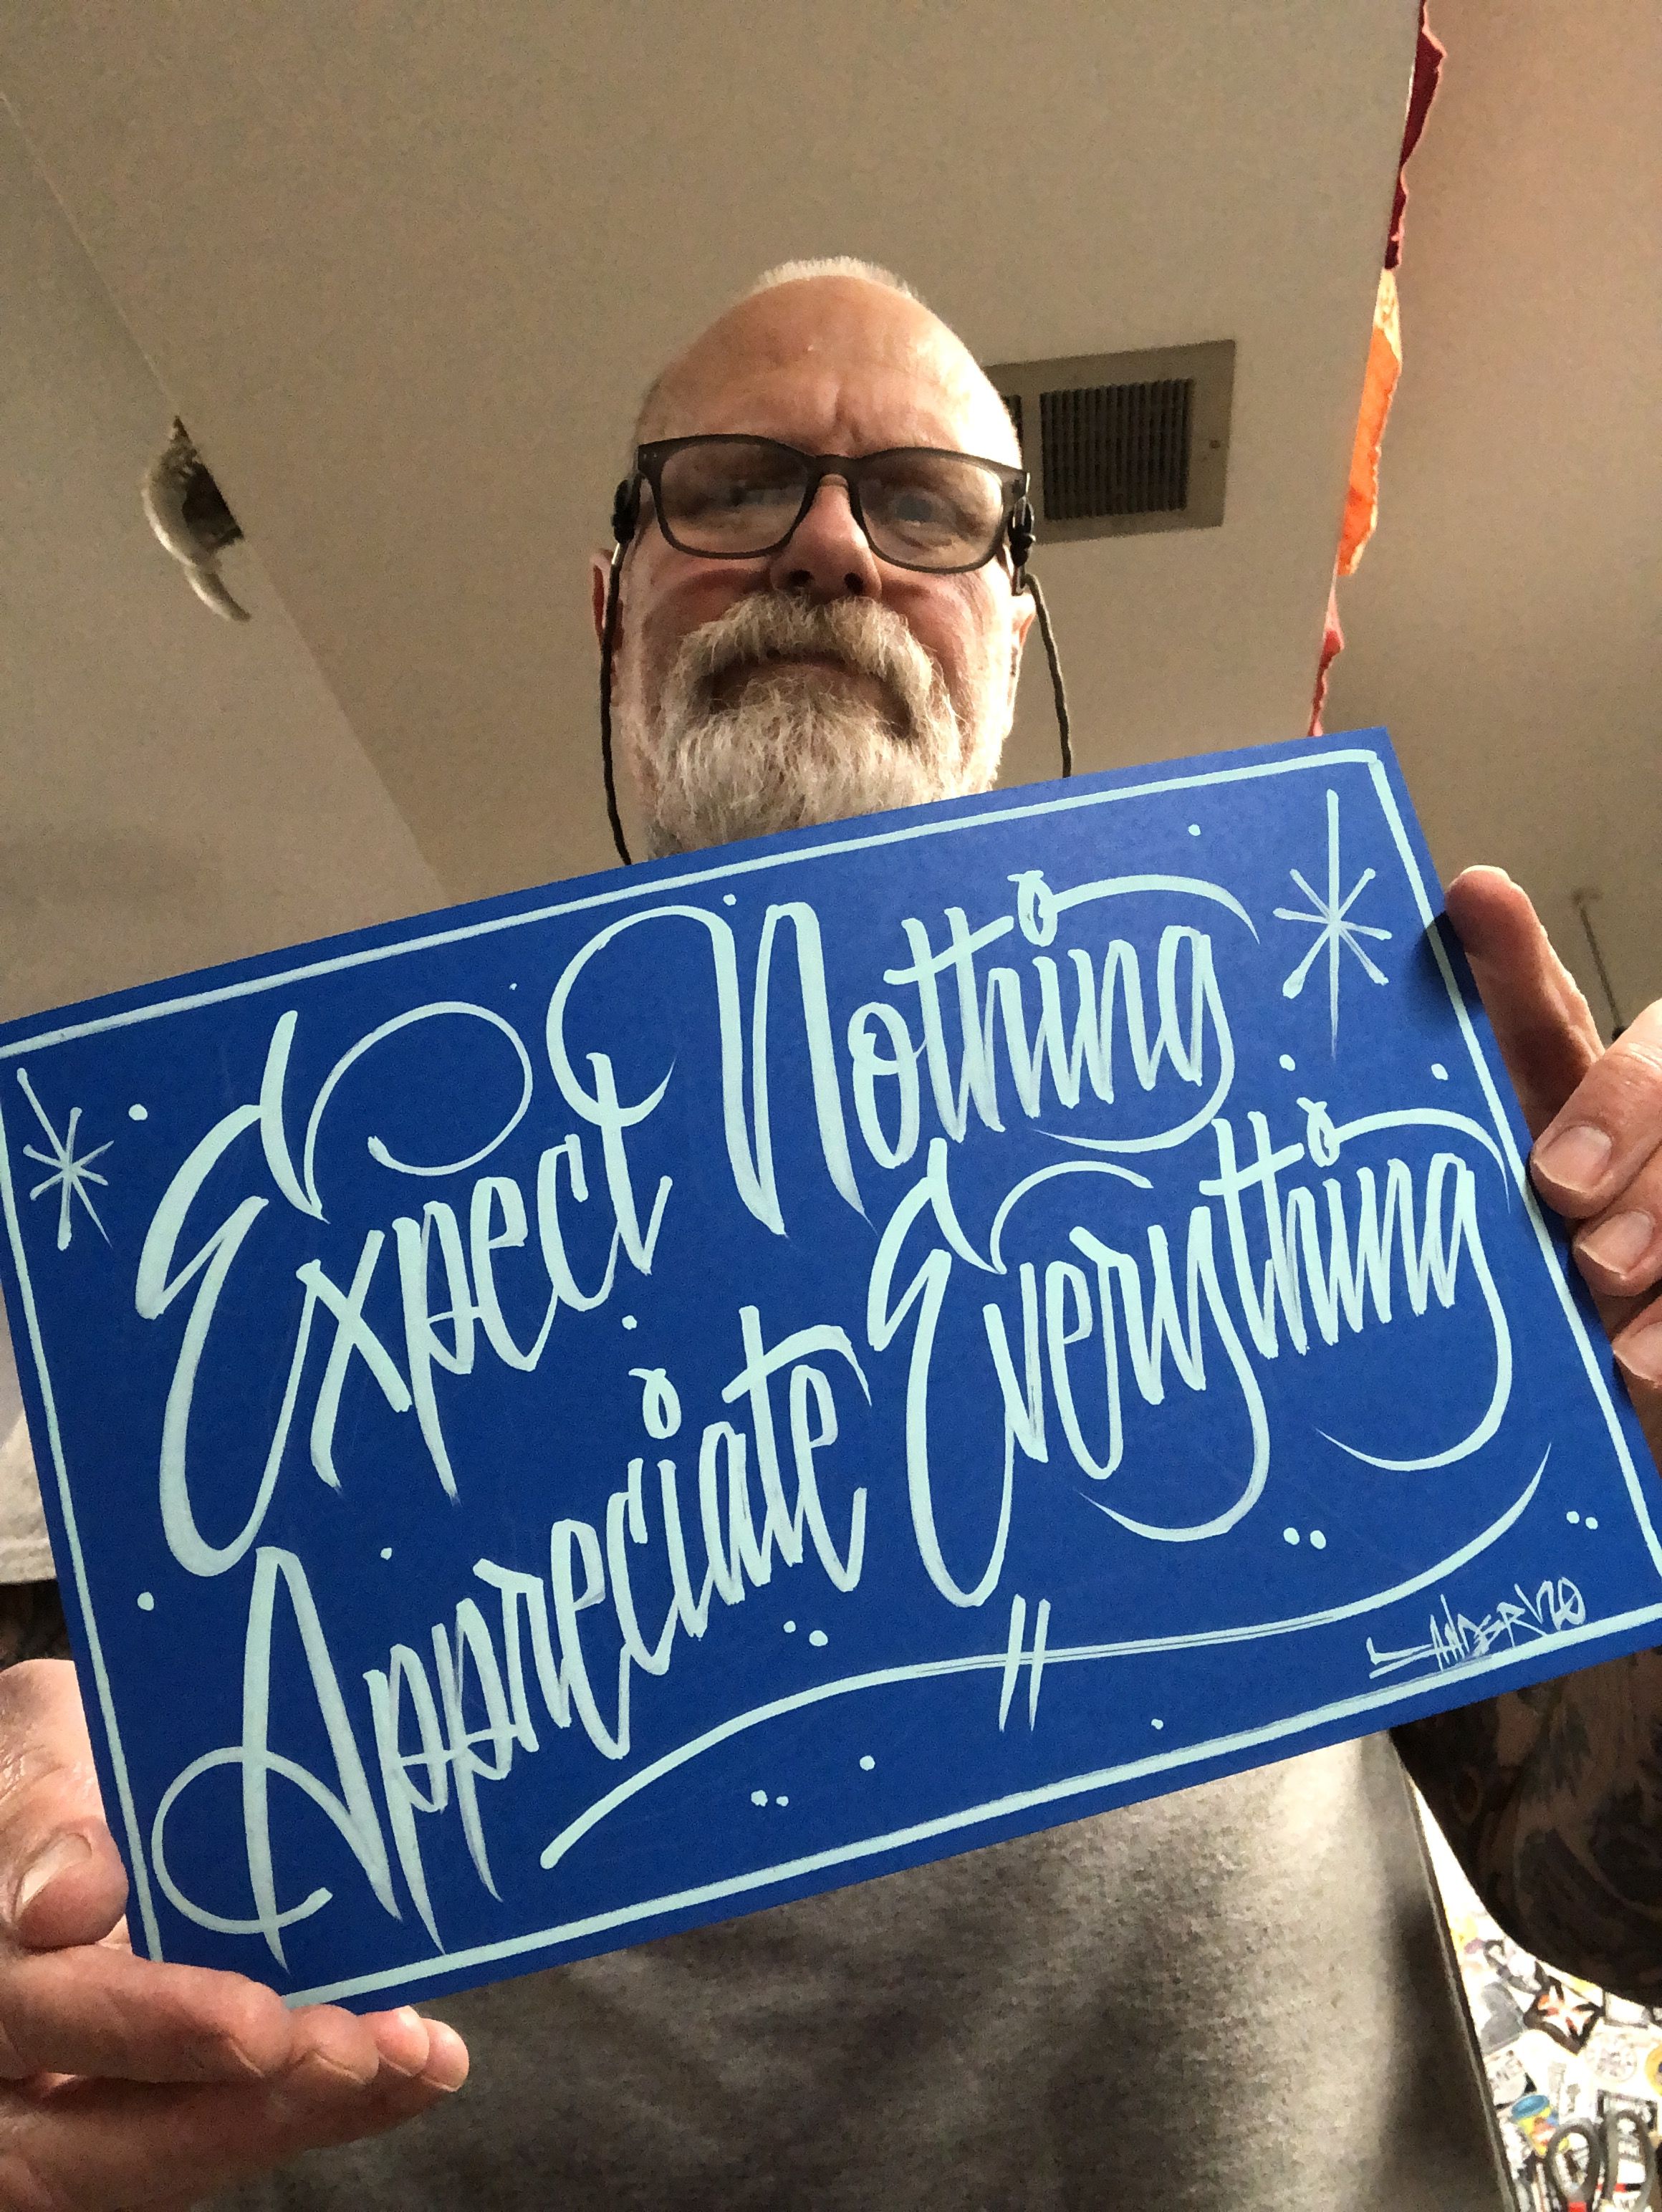 Expect Nothing
Appreciate Everything
LANDER '20